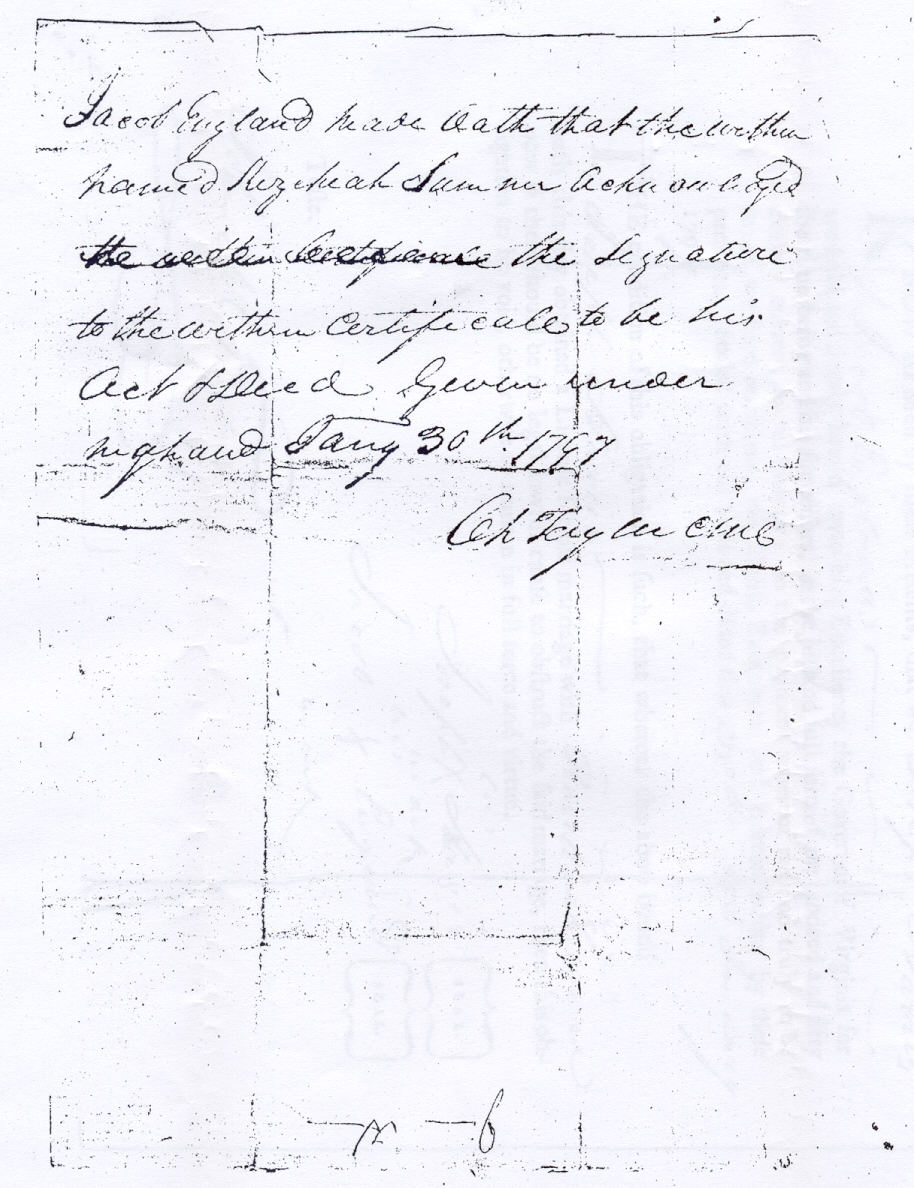 Jacob England made Oath that the within
named Hezekiah Sumner Acknowledged
the within Certificate the Signature
to the within Certificate to be his
Act & Deed Given under
my hand Jany 30th 1797
Ch Taylor CMC